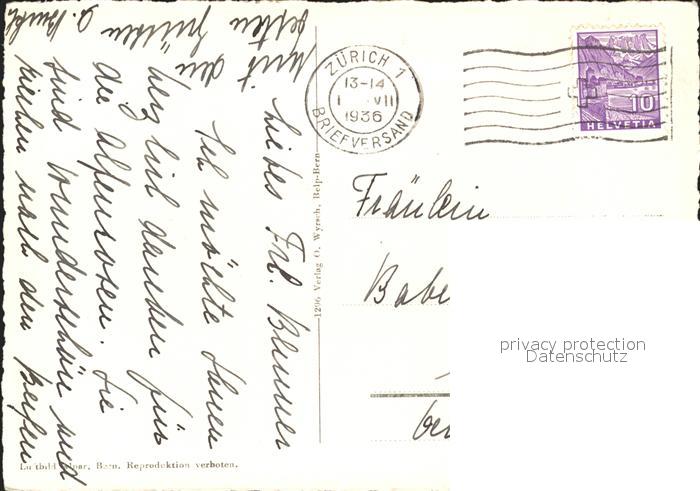 Liebes Frl. Blumer
Ich möchte Ihnen
herzlich danken für
die Alpenrosen. Sie
sind wunderschön und
riechen nach den Bergen
Mit den
besten Grüßen
ZÜRICH 1
13-14
1 VII
1936
BRIEFVERSAND
10
HELVETIA
Fräulein
Babe
1296 Verlag O. Wyrsch, Belp-Bern
Luftbild Alpar, Bern. Reproduktion verboten.
privacy protection
Datenschutz